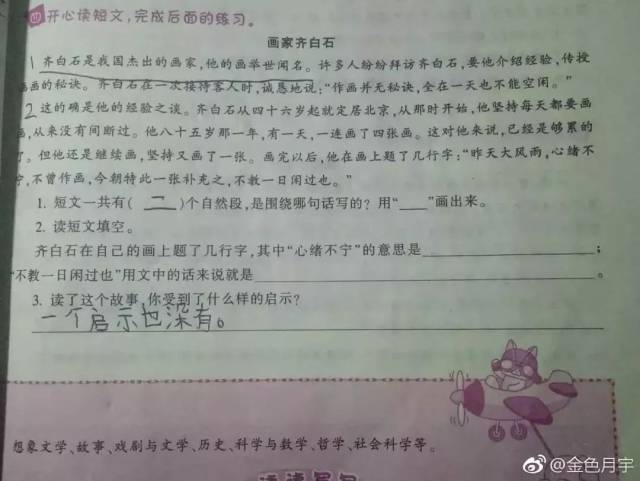 四 开心读短文,完成后面的练习。
画家齐白石
1 齐白石是我国杰出的画家,他的画举世闻名。许多人纷纷拜访齐白石,要他介绍经验,传授
画画的秘诀。齐白石在一次接待客人时,诚恳地说:“作画并无秘诀,全在一天也不能空闲。”
2 这的确是他的经验之谈。齐白石从四十六岁起就定居北京,从那时开始,他坚持每天都要画
画,从来没有间断过。他八十五岁那一年,有一天,一连画了四张画。这对他来说,已经是够累的
了。但他还是继续画,坚持又画了一张。画完以后,他在画上题了几行字:“昨天大风雨,心绪不
宁,不曾作画,今朝特此一张补充之,不教一日闲过也。”
1. 短文一共有( 二 )个自然段,是围绕哪句话写的?用“____”画出来。
2. 读短文填空。
齐白石在自己的画上题了几行字,其中“心绪不宁”的意思是____________________;
“不教一日闲过也”用文中的话来说就是____________________。
3. 读了这个故事,你受到了什么样的启示?
一个启示也没有。
想象文学、故事、戏剧与文学、历史、科学与数学、哲学、社会科学等。
@金色月宇